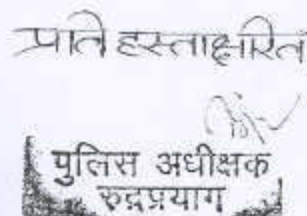 प्रति हस्ताक्षरित
पुलिस अधीक्षक
रुद्रप्रयाग